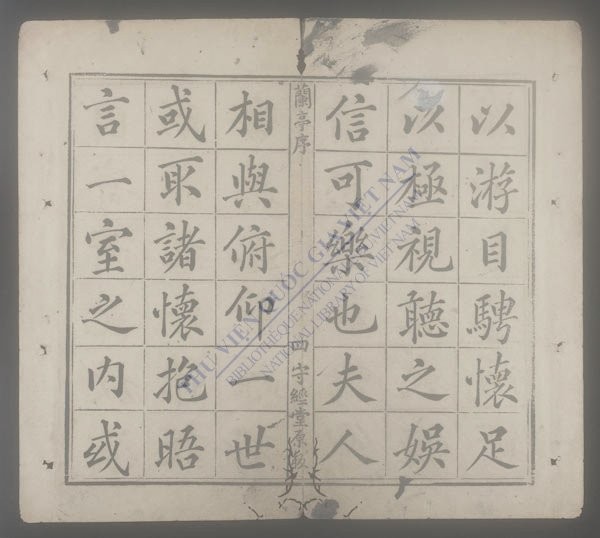 以游目騁懷足
以極視聽之娛
信可樂也夫人
蘭亭序
四 守經堂原板
相與俯仰一世
或取諸懷抱晤
言一室之內或
THƯ VIỆN QUỐC GIA VIỆT NAM
BIBLIOTHÈQUE NATIONALE DU VIETNAM
NATIONAL LIBRARY OF VIETNAM